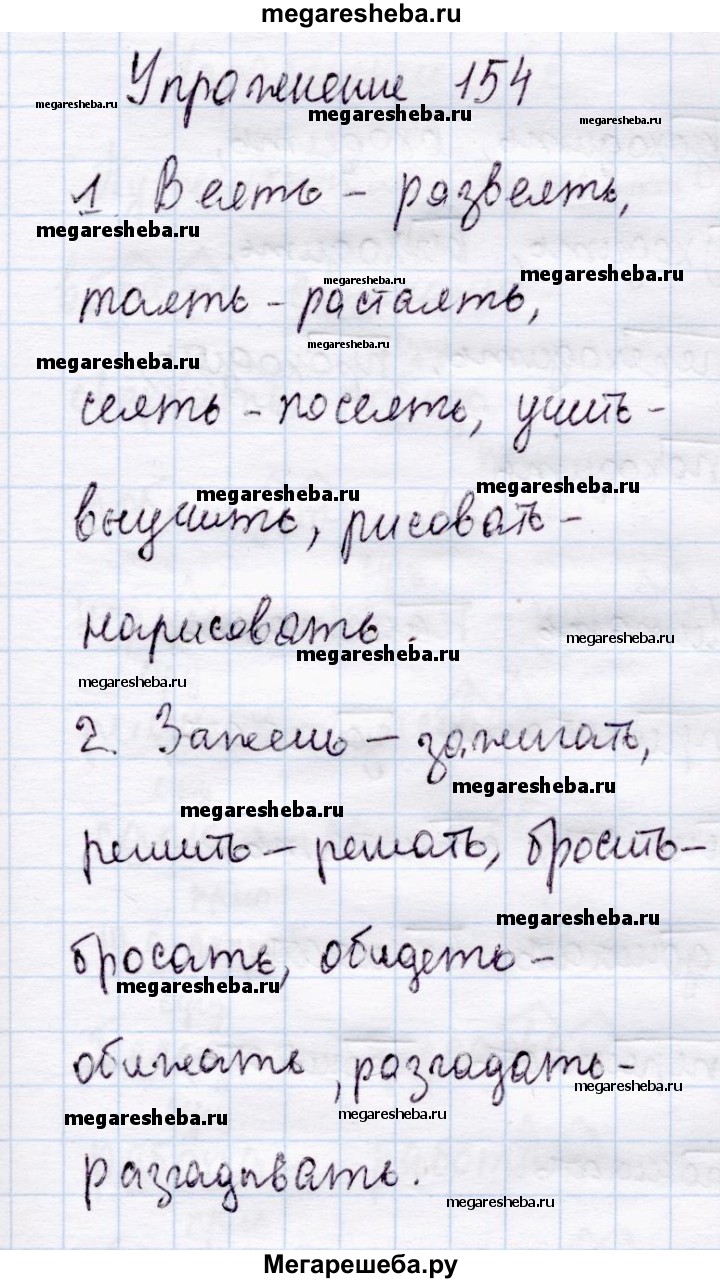 megaresheba.ru
Упражнение 154
megaresheba.ru megaresheba.ru megaresheba.ru
1. Веять – развеять,
megaresheba.ru
megaresheba.ru megaresheba.ru
таять – растаять,
megaresheba.ru
megaresheba.ru
сеять – посеять, учить –
megaresheba.ru megaresheba.ru
выучить, рисовать –
нарисовать.
megaresheba.ru
megaresheba.ru
megaresheba.ru
2. Зажечь – зажигать,
megaresheba.ru
megaresheba.ru
решить – решать, бросить –
megaresheba.ru
бросать, обидеть –
megaresheba.ru
обижать, разгадать –
megaresheba.ru
megaresheba.ru megaresheba.ru
разгадывать.
megaresheba.ru
Мегарешеба.ру